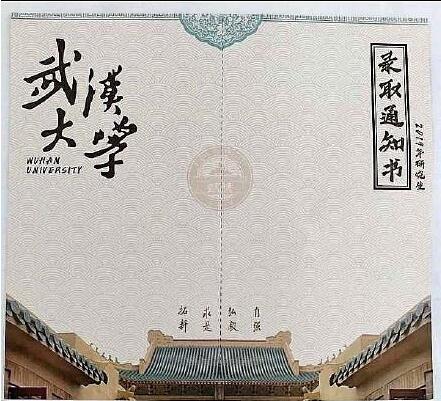 武漢大學
WUHAN
UNIVERSITY
录取通知书
2019年研究生
自强
弘毅
求是
拓新